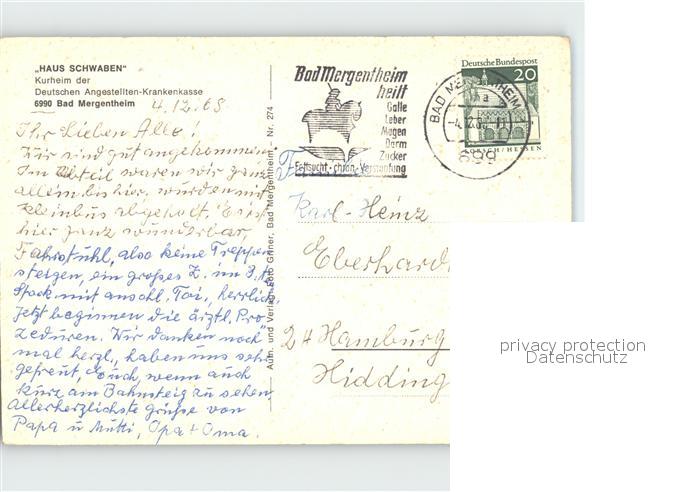 „HAUS SCHWABEN"
Kurheim der
Deutschen Angestellten-Krankenkasse
6990 Bad Mergentheim
4.12.68
Ihr Lieben Alle!
Wir sind gut angekommen.
Im Abteil waren wir ganz
allein bis hier, wurden mit
Kleinbus abgeholt. Es ist
hier ganz wunderbar,
Fahrstuhl, also keine Treppen
steigen, ein großes Z. im 3.
Stock mit anschl. Toi., herrlich.
Jetzt beginnen die ärztl. Pro
zeduren. Wir danken noch
mal herzl., haben uns sehr
gefreut, Euch, wenn auch
kurz am Bahnsteig zu sehen.
Allerherzlichste Grüße von
Papa u. Mutti, Opa + Oma.
Auf. und Verlag: Foto Griner, Bad Mergentheim – Nr. 274
Bad Mergentheim
heilt
Galle
Leber
Magen
Darm
Zucker
Fettsucht - chron. Verstopfung
BAD MERGENTHEIM
a
699
Deutsche Bundespost
20
LORSCH/HESSEN
Karl-Heinz
Eberhardt
24 Hamburg
Hidding
privacy protection
Datenschutz